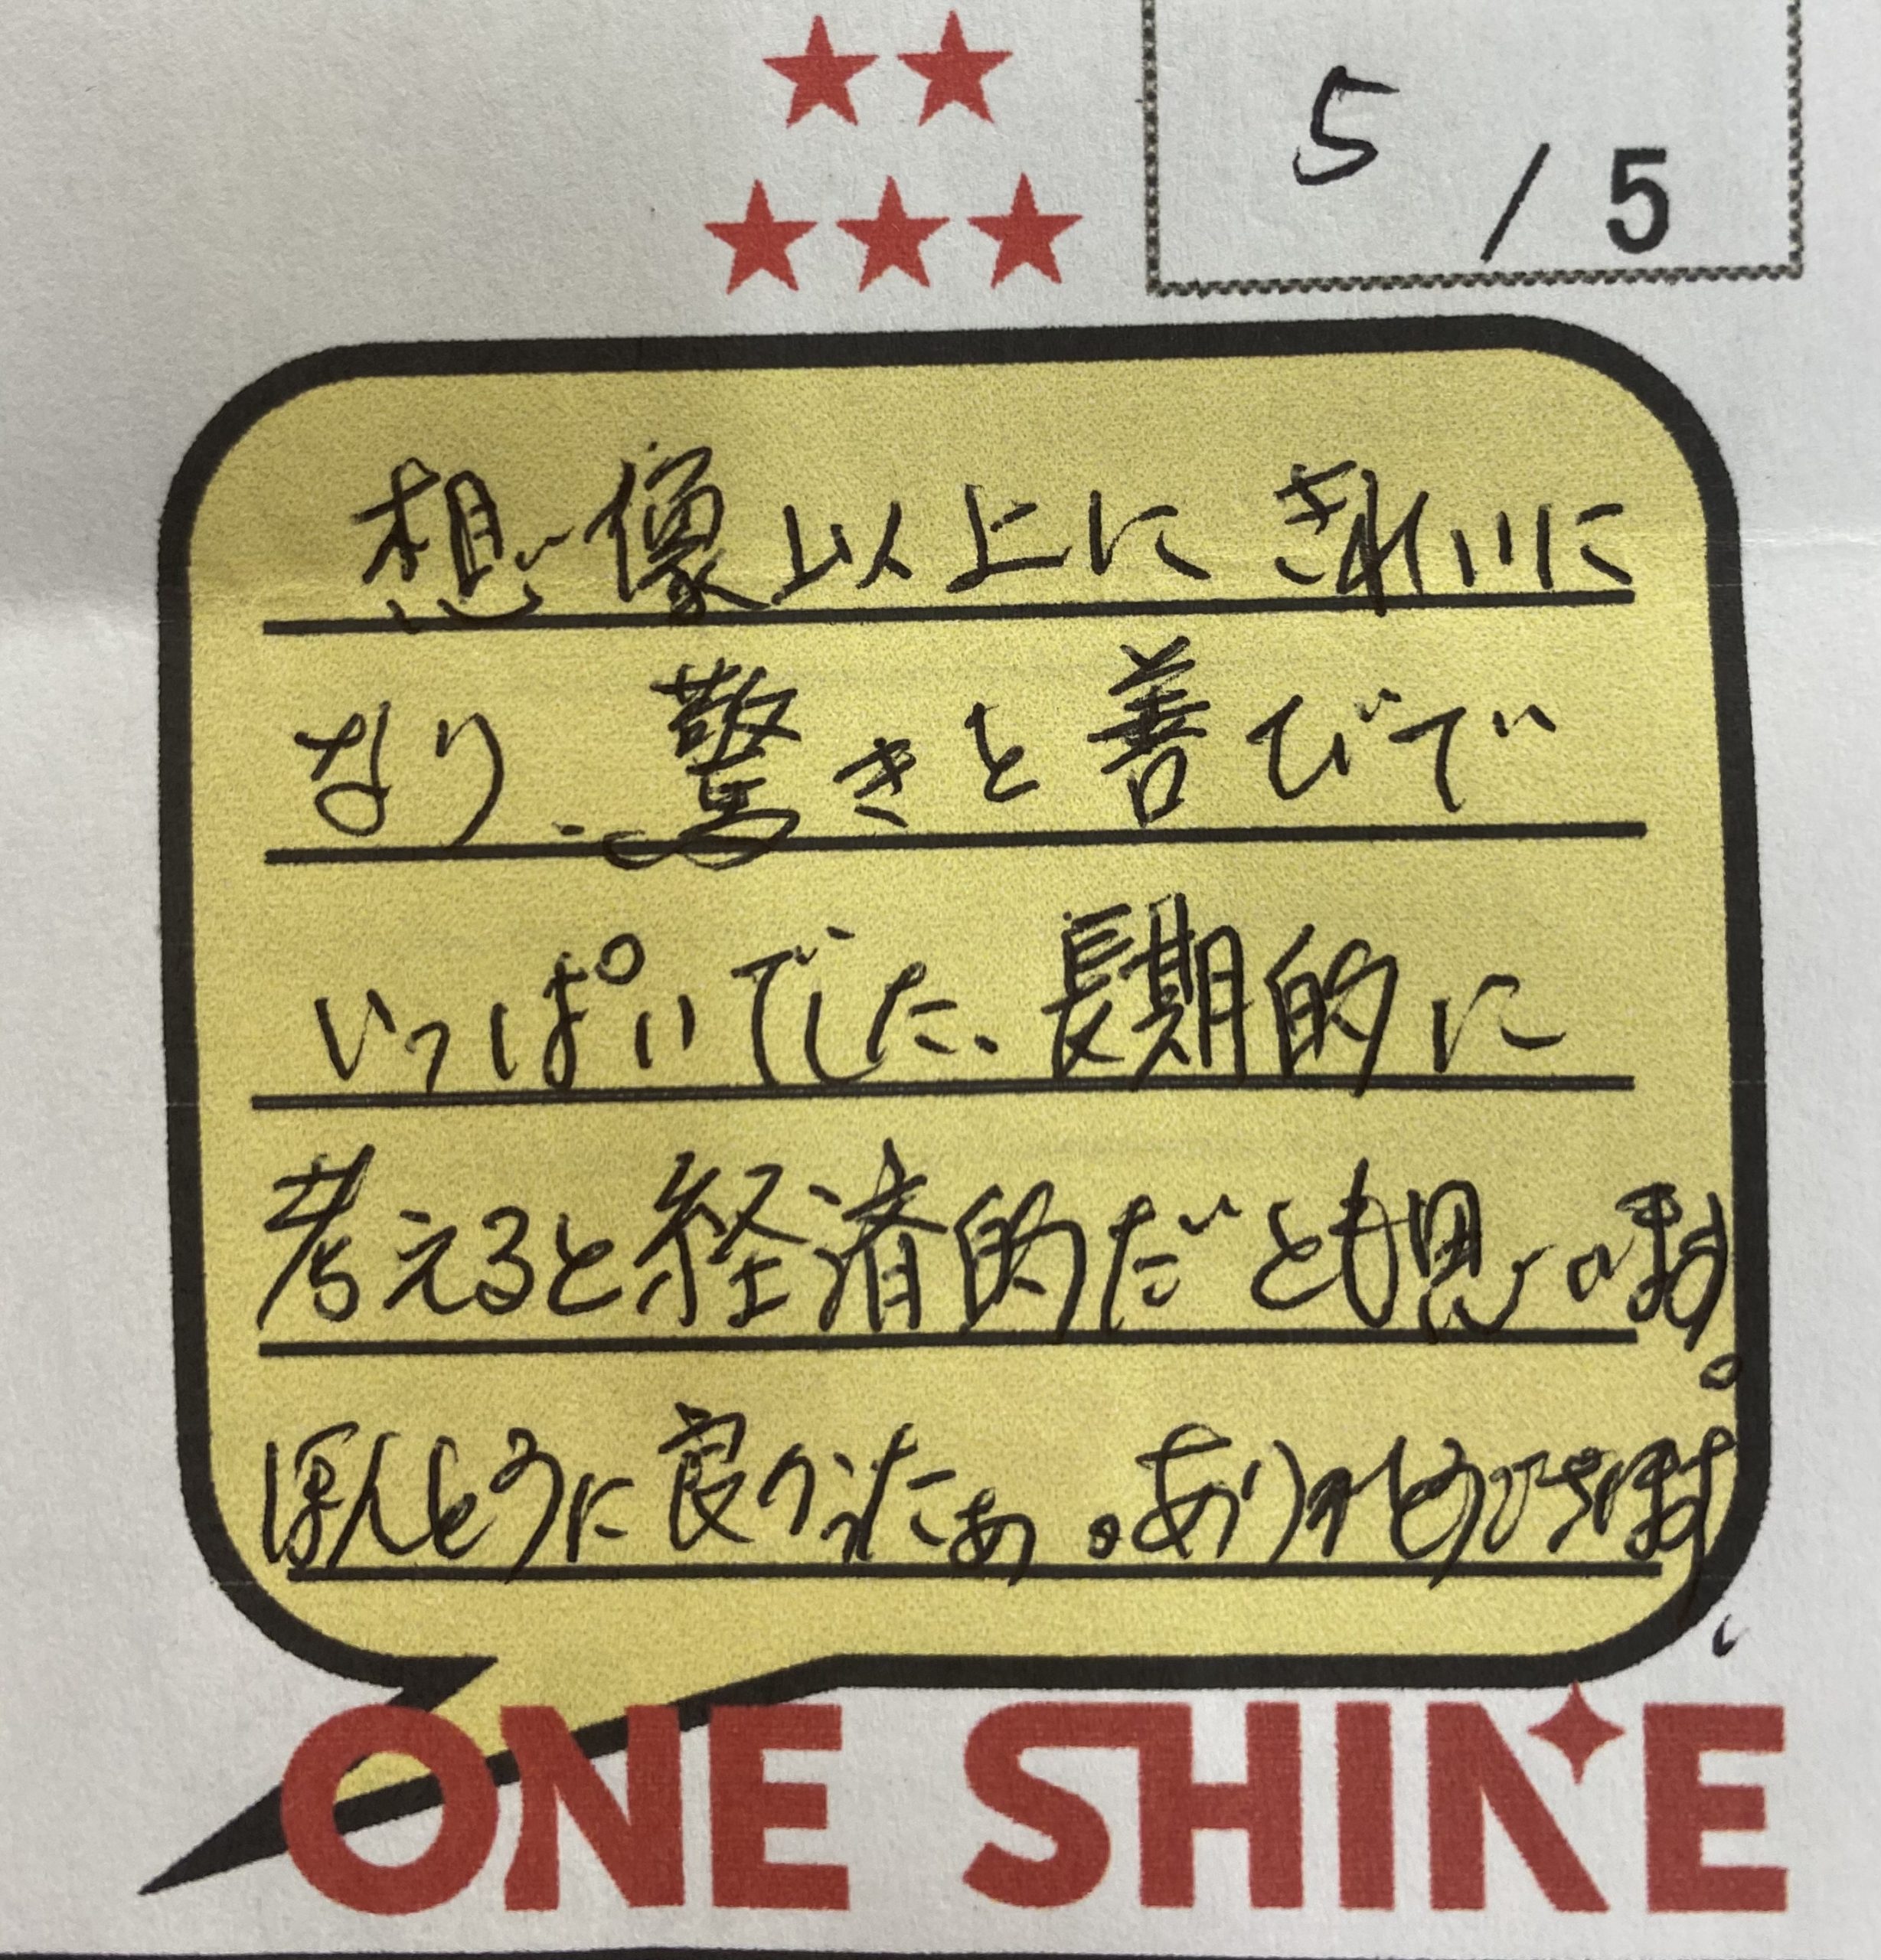 ★★
★★★
5 / 5
想像以上にきれいに
なり、驚きと善びで
いっぱいでした、長期的に
考えると経済的だとも思います。
ほんとうに良かったぁ。ありがとうございます
ONE SHINE